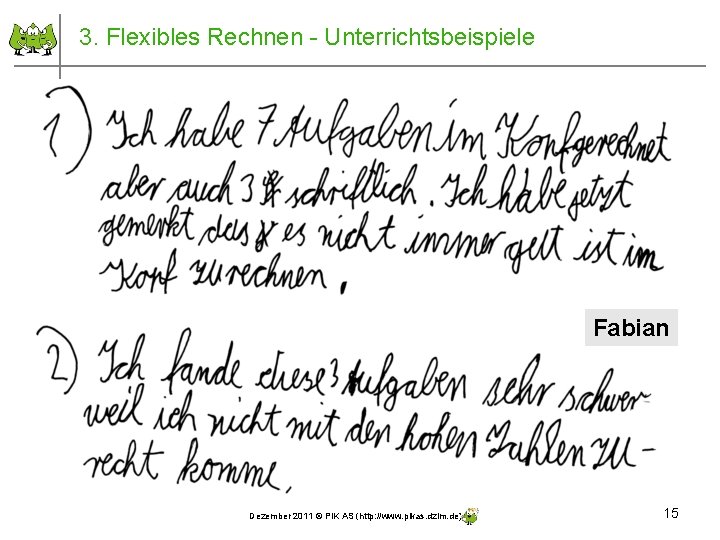 3. Flexibles Rechnen - Unterrichtsbeispiele
1) Ich habe 7 Aufgaben im Kopf gerechnet
aber auch 3 schriftlich. Ich habe jetzt
gemerkt das es nicht immer gut ist im
Kopf zu rechnen.
Fabian
2) Ich fande diese 3 Aufgaben sehr schwer
weil ich nicht mit den hohen Zahlen zu-
recht komme.
Dezember 2011 © PIK AS (http://www.pikas.dzlm.de)
15